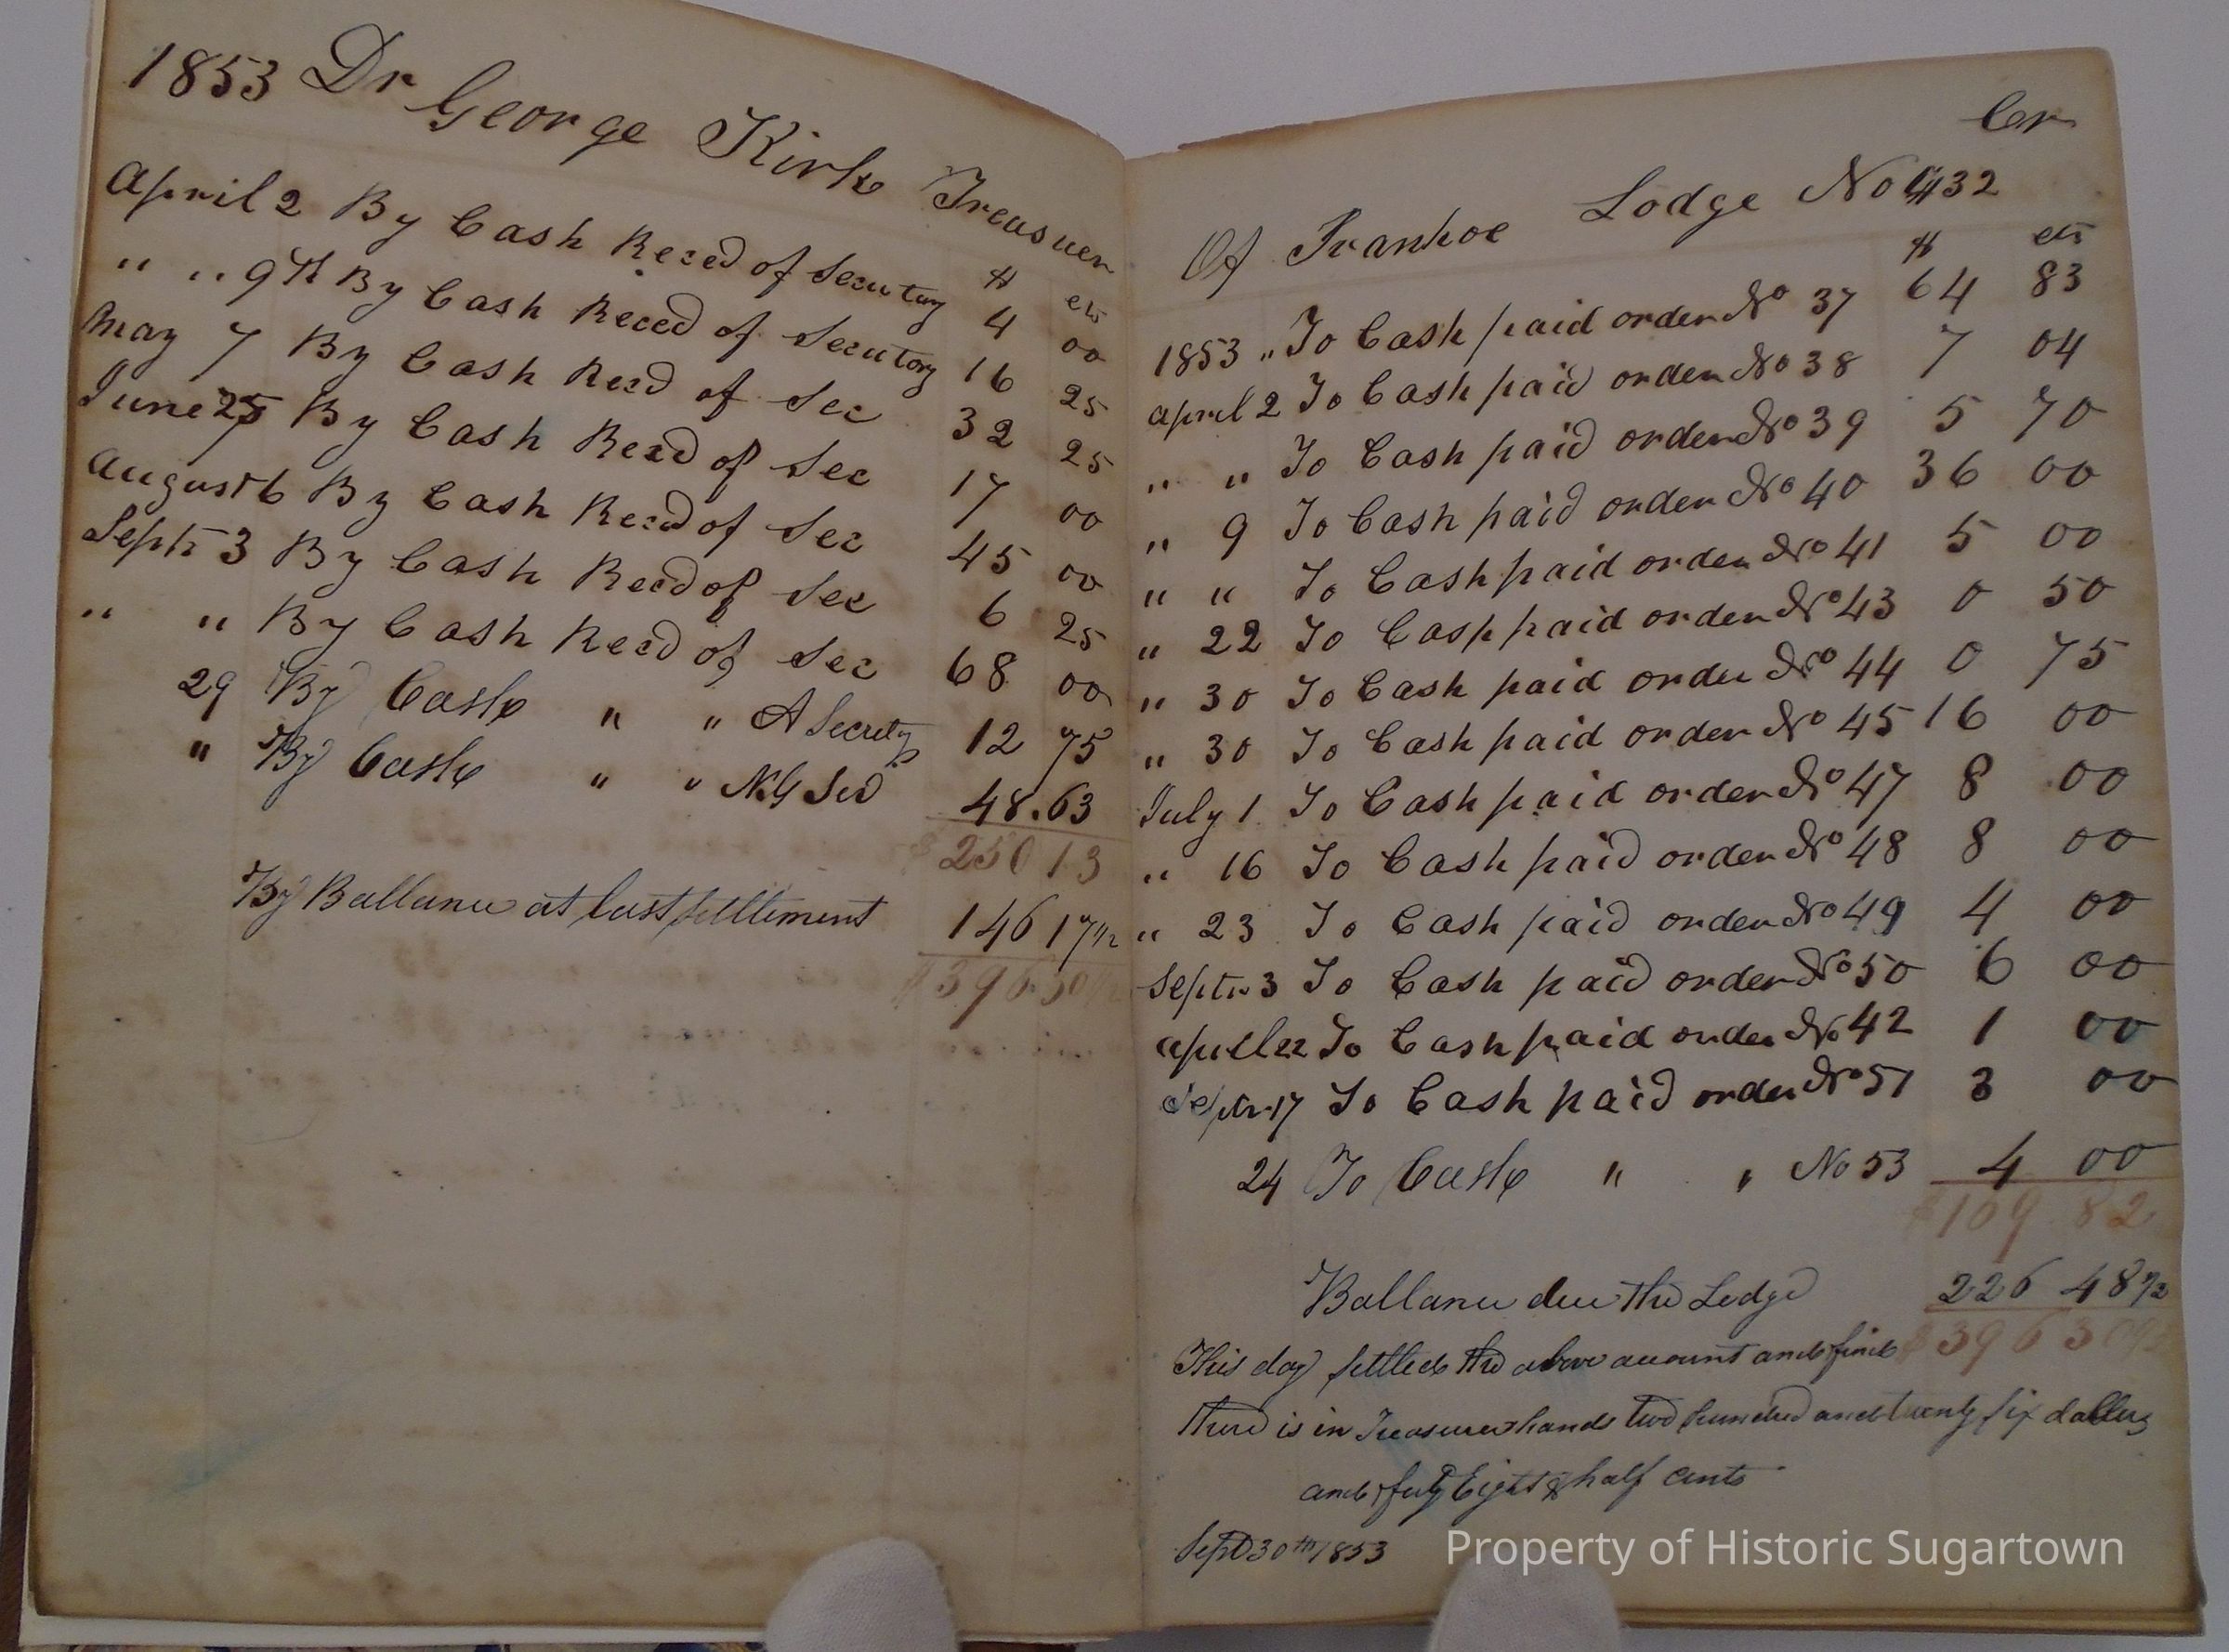 1853 Dr
George Kirk Treasurer
$ cts
April 2 By Cash Reced of Secutary 4 00
" " 9th By Cash Reced of Secutory 16 25
May 7 By Cash Recd of Sec 32 25
June 25 By Cash Recd of Sec 17 00
August 6 By Cash Recd of Sec 45 00
Septr 3 By Cash Recd of Sec 6 25
" " By Cash Recd of Sec 68 00
29 By Cash " " A Secrety 12 75
" By Cash " " N.G Sed 48.63
$ 250 13
By Ballance at last settlement 146 17 1/2
$ 396 30 1/2
Cr
Of Ivanhoe Lodge No 432
$ cts
1853 " To Cash paid order No 37 64 83
april 2 To Cash paid order No 38 7 04
" " To Cash paid order No 39 5 70
" 9 To Cash paid order No 40 36 00
" " To Cash paid order No 41 5 00
" 22 To Cash paid order No 43 0 50
" 30 To Cash paid order No 44 0 75
" 30 To Cash paid order No 45 16 00
July 1 To Cash paid order No 47 8 00
" 16 To Cash paid order No 48 8 00
" 23 To Cash paid order No 49 4 00
Septr 3 To Cash paid order No 50 6 00
april 22 To Cash paid order No 42 1 00
Septr 17 To Cash paid order No 51 3 00
24 To Cash " " No 53 4 00
$ 169 82
Ballance due the Lodge 226 48 1/2
$ 396 30 1/2
This day settled the above account and find
there is in Treasurer hands two hundred and twenty six dollars
and forty Eight & half cents
Sept 30th 1853
Property of Historic Sugartown